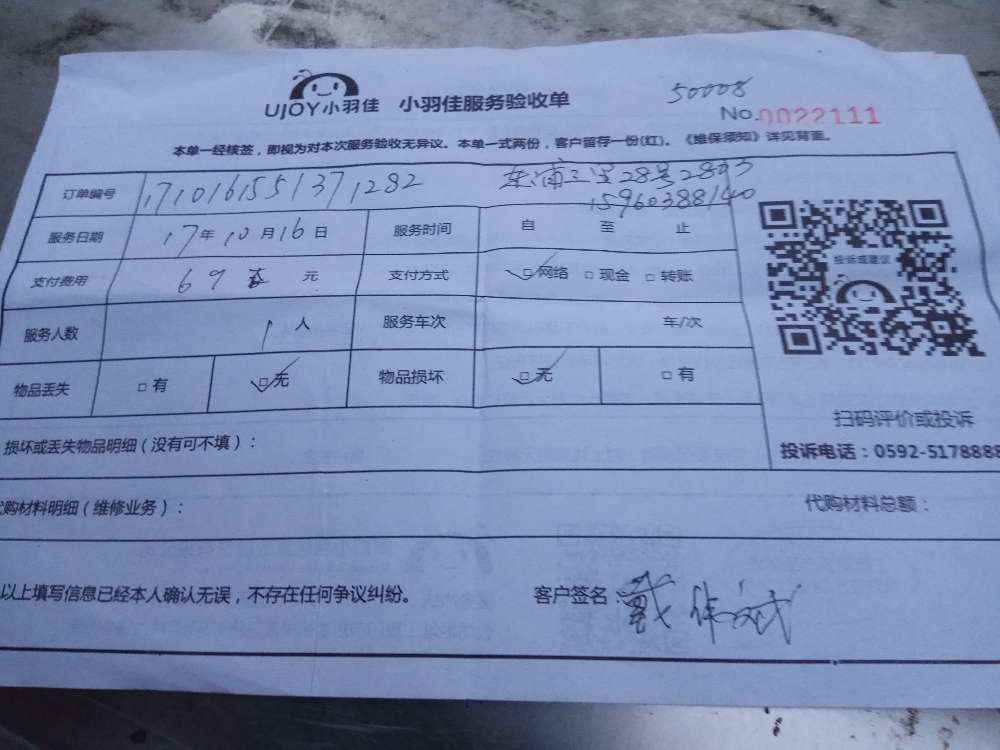 50008
UJOY小羽佳 小羽佳服务验收单
No.0022111
本单一经核签,即视为对本次服务验收无异议。本单一式两份,客户留存一份(红)。《维保须知》详见背面。
订单编号 171016155137 1282 东浦三里28号2803
15960388140
服务日期 17年10月16日 服务时间 自 至 止
支付费用 69 元 支付方式 ☑网络 □现金 □转账
投诉或建议
服务人数 1人 服务车次 车/次
物品丢失 □有 ☑无 物品损坏 ☑无 □有
扫码评价或投诉
损坏或丢失物品明细(没有可不填):
投诉电话:0592-5178888
代购材料明细(维修业务): 代购材料总额:
以上填写信息已经本人确认无误,不存在任何争议纠纷。 客户签名:戴伟斌